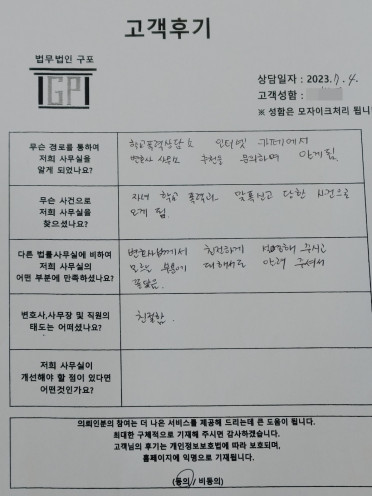 고객후기
법무법인 구포
GP
상담일자 : 2023. 7. 4.
고객성함 :
※ 성함은 모자이크처리 됩니
무슨 경로를 통하여
저희 사무실을
알게 되었나요?
학교폭력상담소 인터넷 카페에서
변호사 사무소 추천을 문의하며 알게됨.
무슨 사건으로
저희 사무실을
찾으셨나요?
자녀 학교 폭력과 맞폭신고 당한 사건으로
오게 됨.
다른 법률사무실에 비하여
저희 사무실의
어떤 부분에 만족하셨나요?
변호사님께서 친절하게 설명해 주시고
모르는 부분에 대해서도 안내 주셔서
좋았음.
변호사,사무장 및 직원의
태도는 어떠셨나요?
친절함.
저희 사무실이
개선해야 할 점이 있다면
어떤것인가요?
의뢰인분의 참여는 더 나은 서비스를 제공해 드리는데 큰 도움이 됩니다.
최대한 구체적으로 기재해 주시면 감사하겠습니다.
고객님의 후기는 개인정보보호법에 따라 보호되며,
홈페이지에 익명으로 기재됩니다.
(동의 / 비동의)